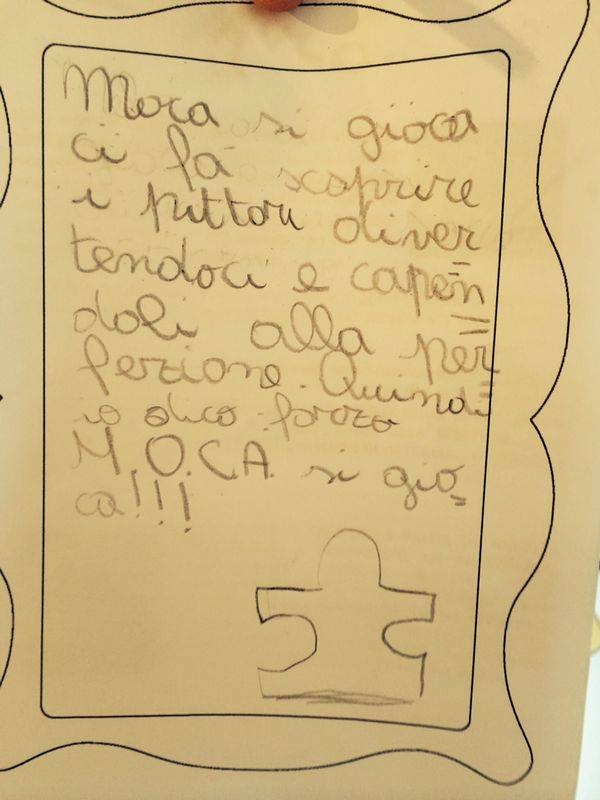 Moca si gioca
ci fá scoprire
i pittori diver
tendoci e capen=
doli alla per=
fezione. Quindi=
io dico forza
M.O.C.A. si gio=
ca!!!